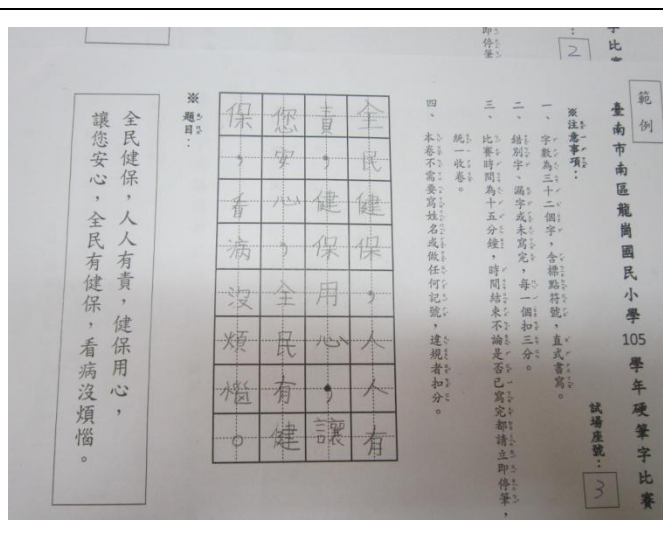 範例
臺南市南區龍崗國民小學105學年硬筆字比賽
試場座號：3
※注意事項：
一、字數為三十二個字，含標點符號，直式書寫。
二、錯別字、漏字或未寫完，每一個扣三分。
三、比賽時間為十五分鐘，時間結束不論是否已寫完都請立即停筆，
統一收卷。
四、本卷不需要寫姓名或做任何記號，違規者扣分。
全民健保，人人有
責，健保用心，讓
您安心，全民有健
保，看病沒煩惱。
※題目：
全民健保，人人有責，健保用心，
讓您安心，全民有健保，看病沒煩惱。
字比賽
：2
即停筆